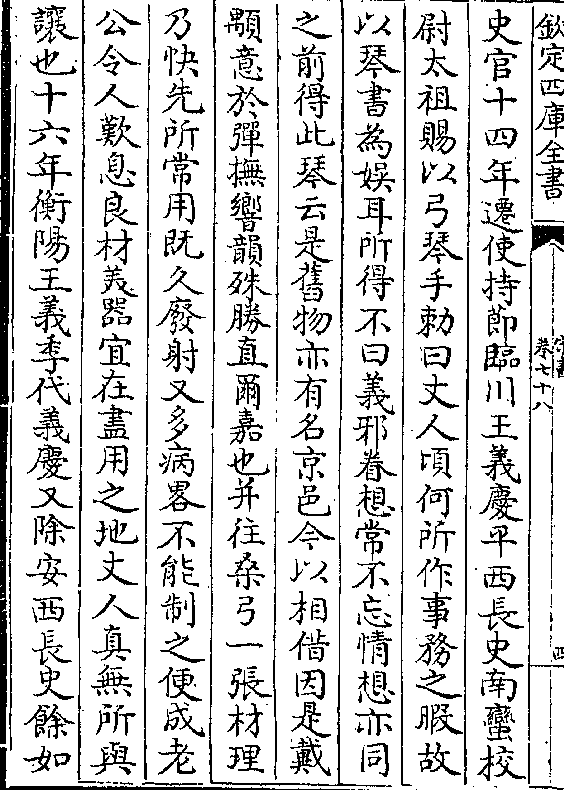 欽定四庫全書
宋書
卷七十八
四
史官十四年遷使持節臨川王義慶平西長史南蠻校
尉太祖賜以弓琴手勅曰丈人頃何所作事務之暇故
以琴書為娯耳所得不曰義邪眷想常不忘情想亦同
之前得此琴云是舊物亦有名京邑今以相借因是戴
顒意於彈撫響韻殊勝直爾嘉也并往桑弓一張材理
乃快先所常用既久廢射又多病畧不能制之便成老
公令人歎息良材美器宜在盡用之地丈人真無所與
讓也十六年衡陽王義季代義慶又除安西長史餘如